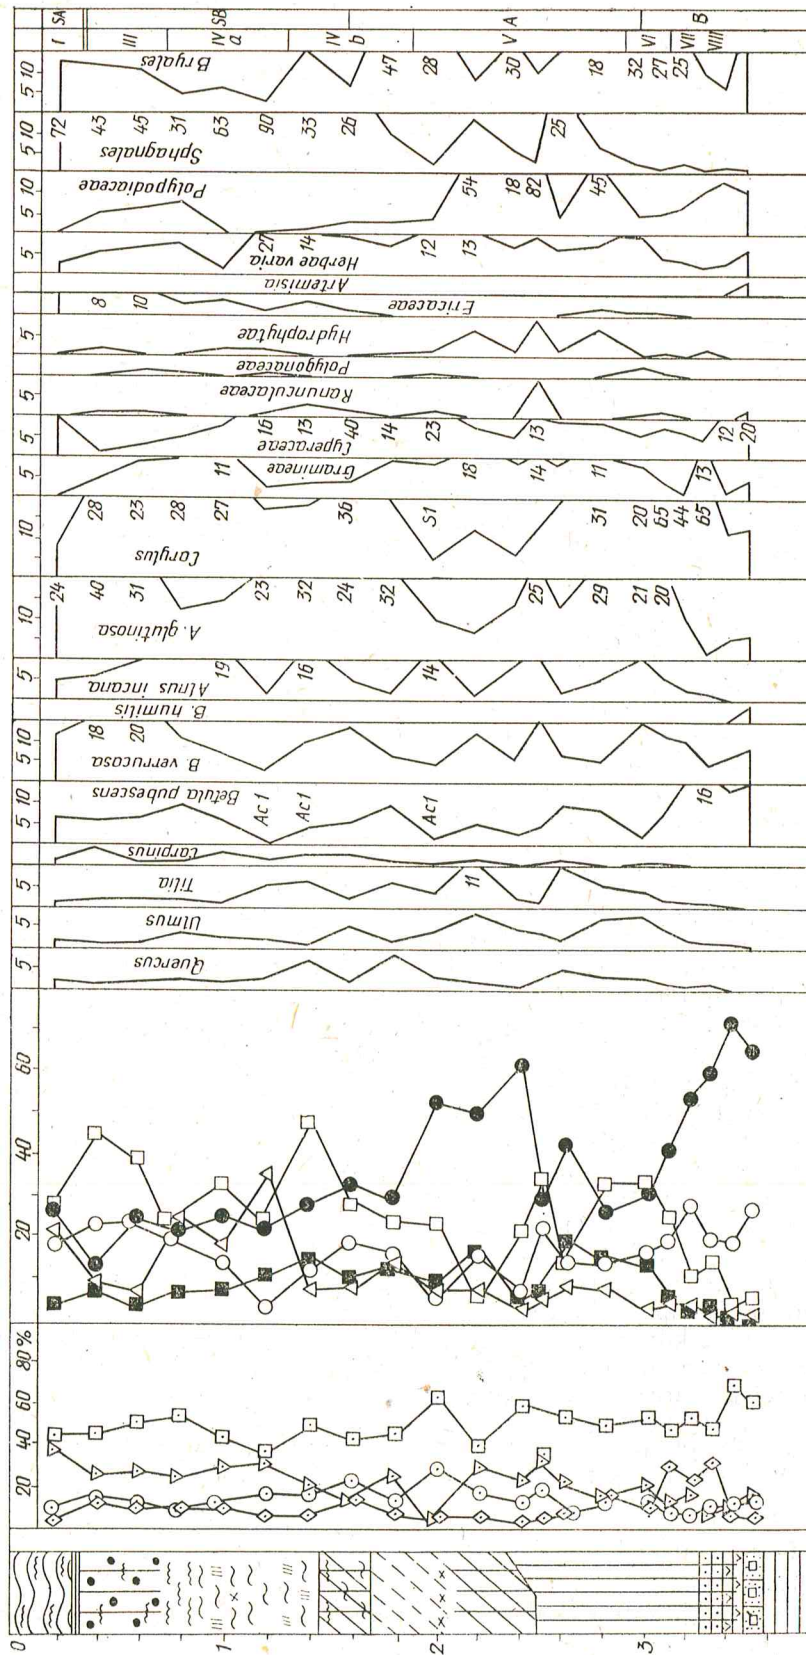 SA SB A B
I III IV a IV b V VI VII VIII
5 10 Bryales 47 28 30 18 32 27 25
5 10 Sphagnales 72 43 45 31 63 90 33 26 25
5 10 Polypodiaceae 54 18 82 45
5 Herbae varia 27 14 12 13
Artemisia
8 10 Ericaceae
5 Hydrophytae
Polygonaceae
5 Ranunculaceae
5 Cyperaceae 16 13 40 14 23 13 12 20
5 Gramineae 11 18 14 11 13
10 Corylus 28 23 28 27 36 S1 31 20 65 44 65
10 A. glutinosa 24 40 31 23 32 24 32 25 29 21 20
5 Alnus incana 19 16 14
B. humilis
5 10 B. verrucosa 18 20
5 10 Betula pubescens Ac1 Ac1 Ac1 16
Carpinus
5 Tilia 11
5 Ulmus
5 Quercus
20 40 60
20 40 60 80 %
0 1 2 3